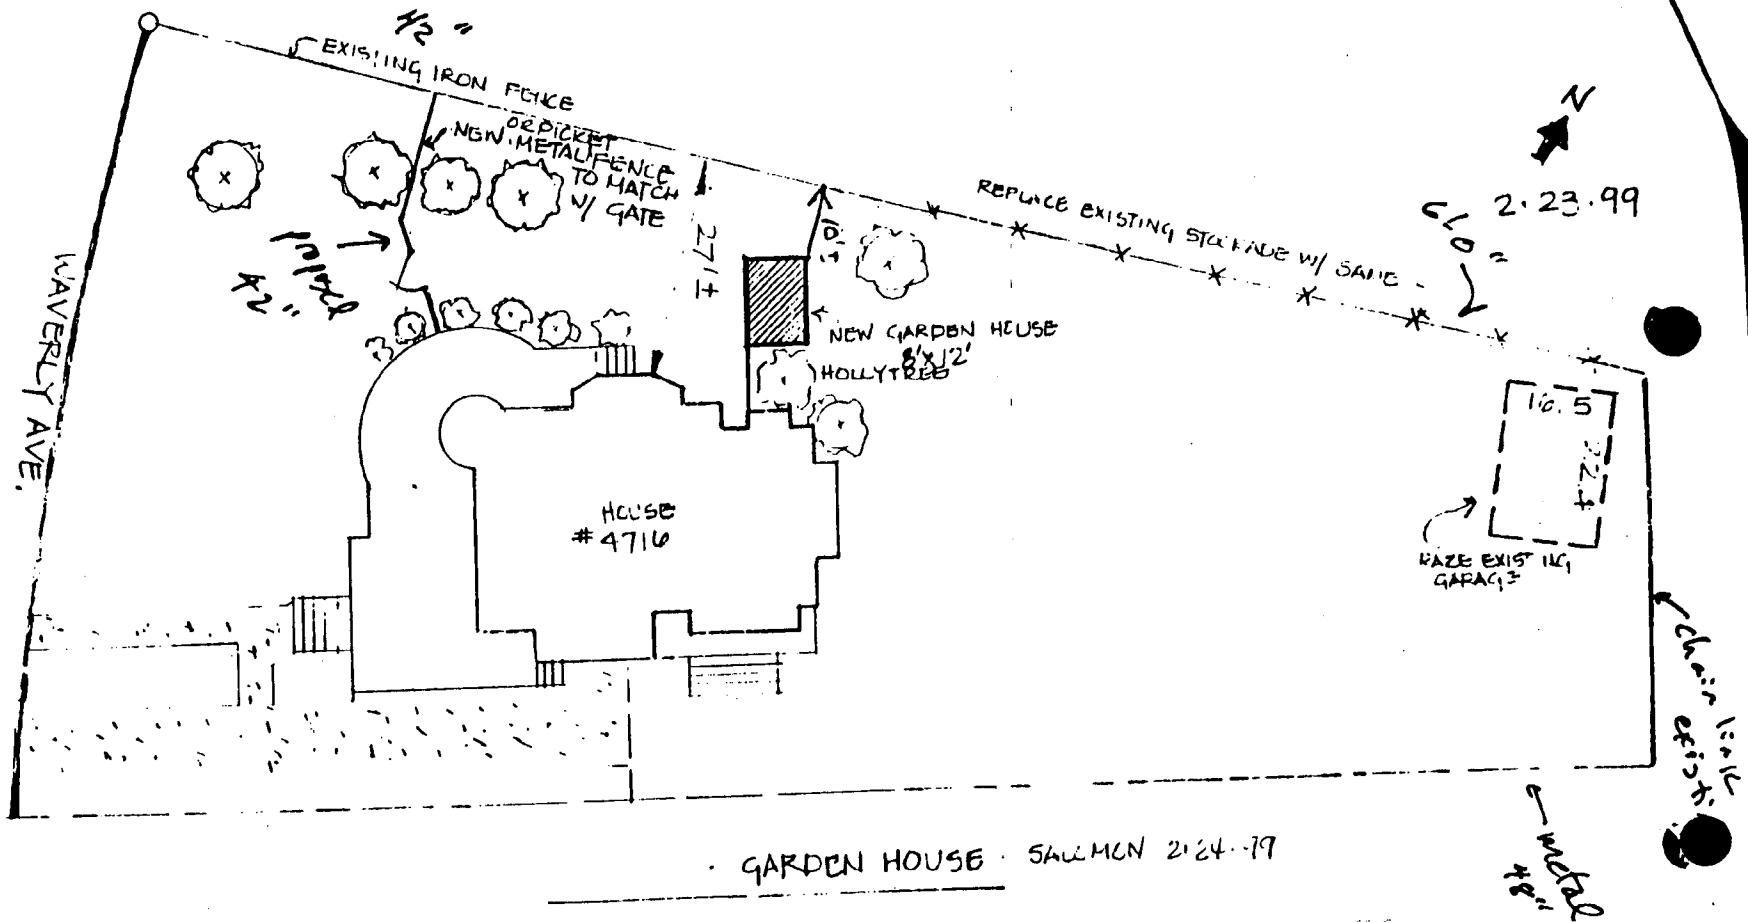 42"
EXISTING IRON FENCE
OR PICKET
NEW METAL FENCE
TO MATCH
W/ GATE
42"
27'±
10'±
REPLACE EXISTING STOCKADE W/ SAME
N
2.23.99
NEW GARDEN HOUSE
8'X12'
HOLLYTREE
WAVERLY AVE.
HOUSE
# 4716
16.5
22.4
RAZE EXISTING
GARAGE
chain link
exist.
metal
48"
GARDEN HOUSE